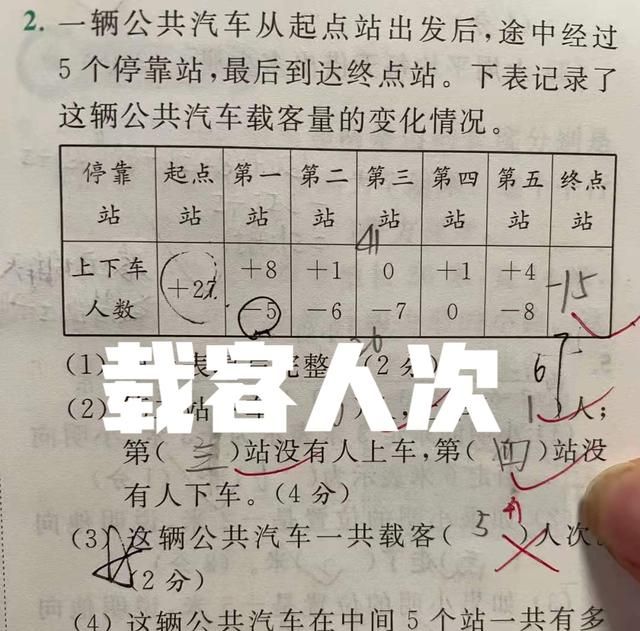 2. 一辆公共汽车从起点站出发后，途中经过
5 个停靠站，最后到达终点站。下表记录了
这辆公共汽车载客量的变化情况。
停靠站 起点站 第一站 第二站 第三站 第四站 第五站 终点站
41
上下车人数 +27 +8 +1 0 +1 +4 -15
-5 -6 -7 0 -8
26
(1) 表 完整 (2 分) 6
载客人次
(2) 站 1 )人；
第( 三 )站没有人上车，第( 四 )站没
有人下车。(4 分)
(3) 这辆公共汽车一共载客( 5 )人次。
(2 分)
(4) 这辆公共汽车在中间 5 个站一共有多